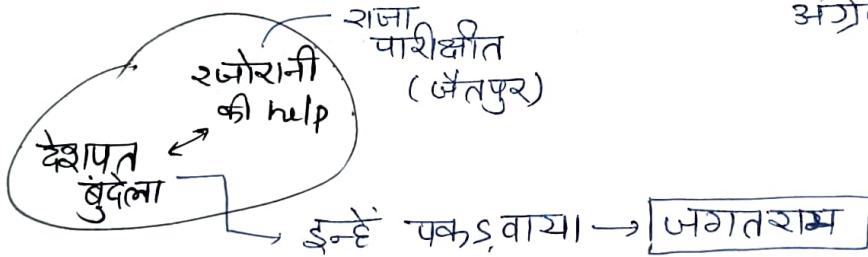 राजा
पारीक्षीत
(जैतपुर)
अंग्रे
रजोरानी
की help
देशपत
बुंदेला
इन्हें पकड़वाया → जगतराम